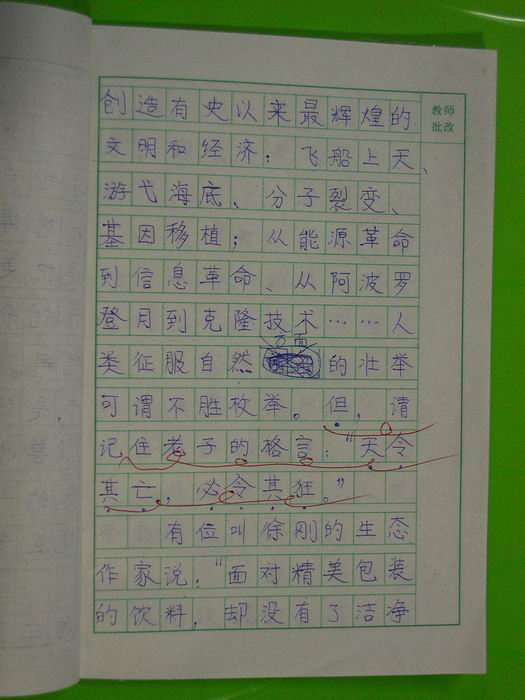 教师
批改
创造有史以来最辉煌的
文明和经济：飞船上天、
游弋海底、分子裂变、
基因移植；从能源革命
到信息革命、从阿波罗
登月到克隆技术……人
方面
类征服自然的壮举
可谓不胜枚举。但，请
记住老子的格言："天令
其亡，必令其狂。"
有位叫徐刚的生态
作家说："面对精美包装
的饮料，却没有了洁净